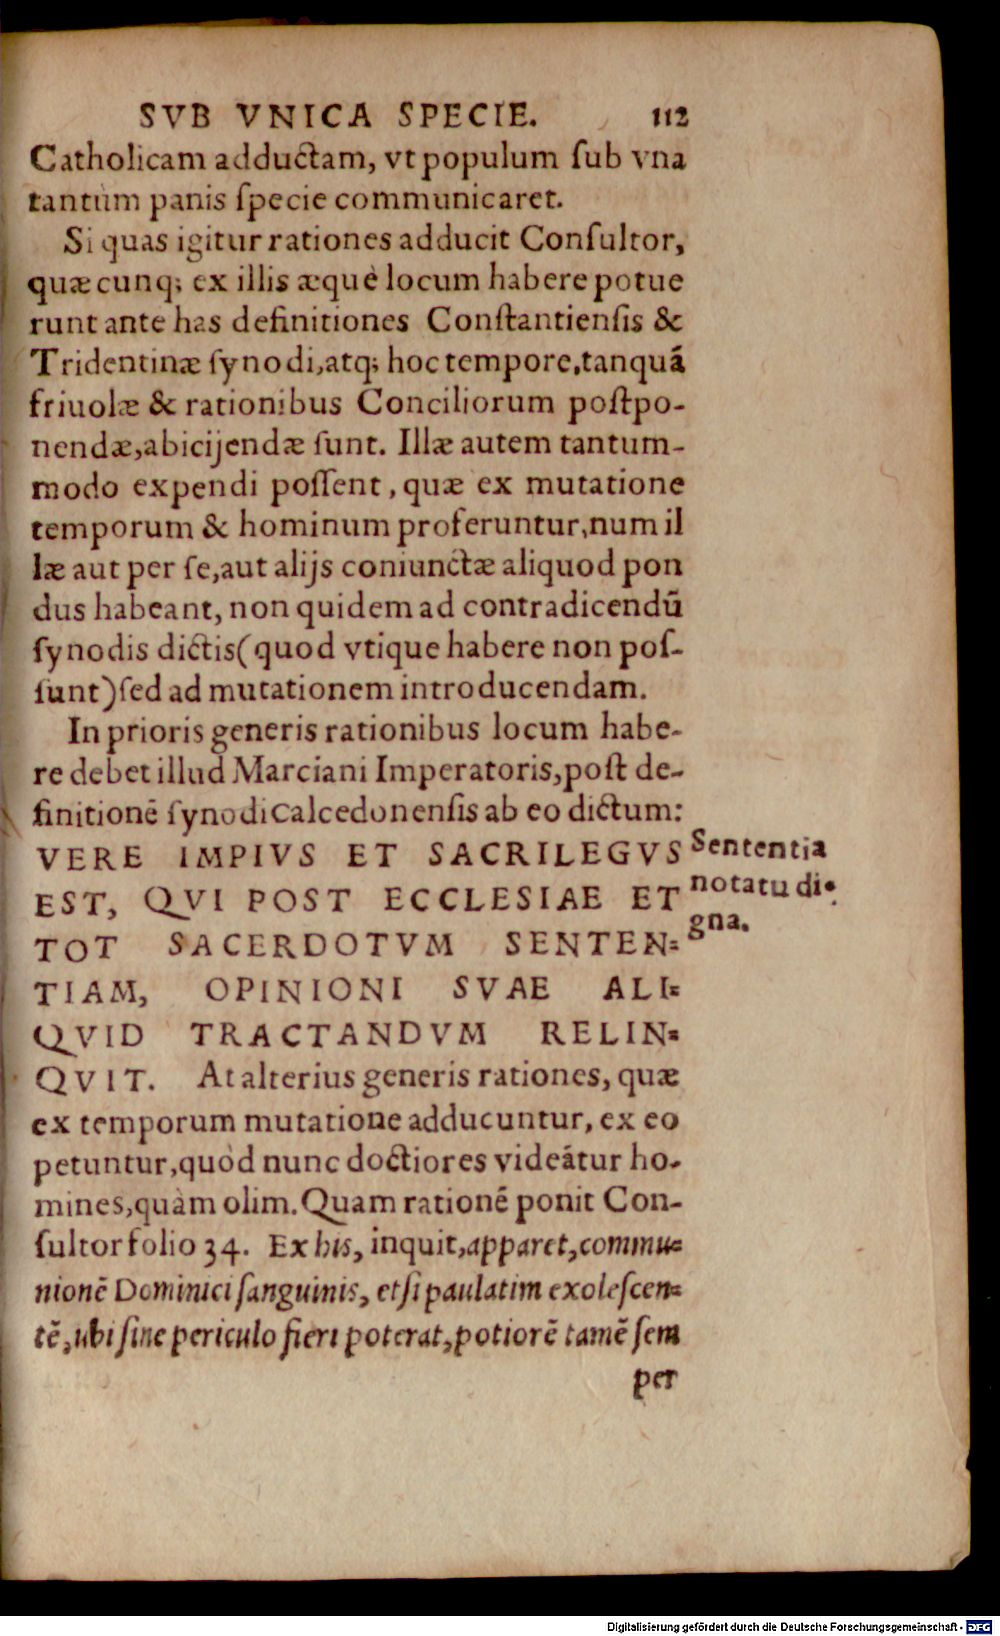 SVB VNICA SPECIE. 112
Catholicam adductam, vt populum ſub vna
tantùm panis ſpecie communicaret.
Si quas igitur rationes adducit Conſultor,
quæcunq; ex illis æquè locum habere potue
runt ante has definitiones Conſtantienſis &
Tridentinæ ſynodi, atq; hoc tempore, tanquā
friuolæ & rationibus Conciliorum poſtpo-
nendæ, abicijendæ ſunt. Illæ autem tantum-
modo expendi poſſent, quæ ex mutatione
temporum & hominum proferuntur, num il
læ aut per ſe, aut alijs coniunctæ aliquod pon
dus habeant, non quidem ad contradicendū
ſynodis dictis (quod vtique habere non poſ-
ſunt) ſed ad mutationem introducendam.
In prioris generis rationibus locum habe-
re debet illud Marciani Imperatoris, poſt de-
finitionē ſynodi Calcedonenſis ab eo dictum:
VERE IMPIVS ET SACRILEGVS
EST, QVI POST ECCLESIAE ET
TOT SACERDOTVM SENTEN-
TIAM, OPINIONI SVAE ALI-
QVID TRACTANDVM RELIN-
QVIT. At alterius generis rationes, quæ
ex temporum mutatione adducuntur, ex eo
petuntur, quòd nunc doctiores videātur ho-
mines, quàm olim. Quam rationē ponit Con-
ſultor folio 34. Ex his, inquit, apparet, commu-
nionē Dominici ſanguinis, etſi paulatim exoleſcen-
tē, ubi ſine periculo fieri poterat, potiorē tamē ſem
per
Sententia
notatu di-
gna.
Digitalisierung gefördert durch die Deutsche Forschungsgemeinschaft - DFG